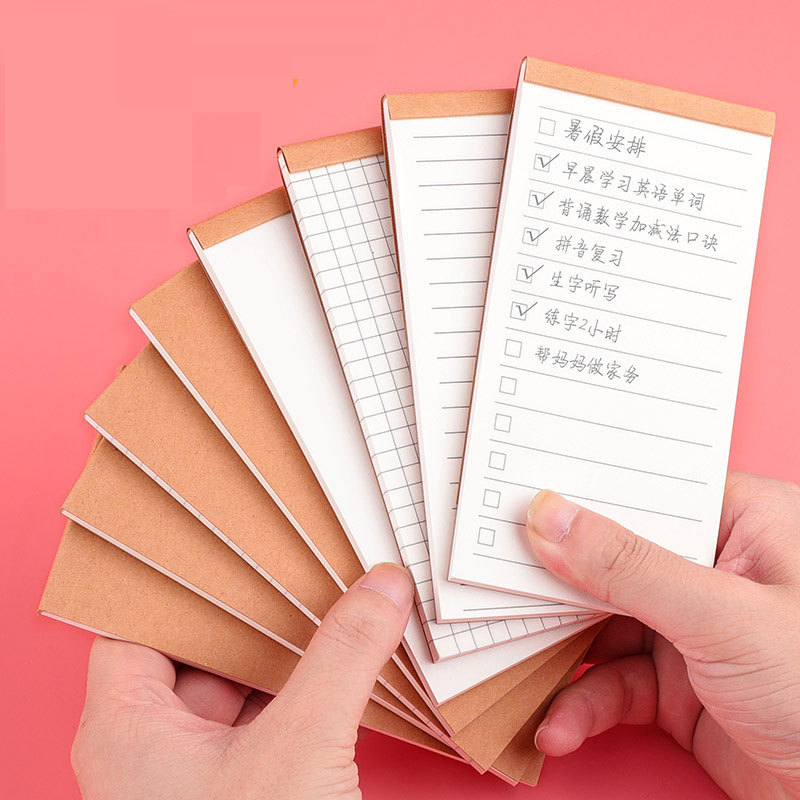 暑假安排
早晨学习英语单词
背诵数学加减法口诀
拼音复习
生字听写
练字2小时
帮妈妈做家务